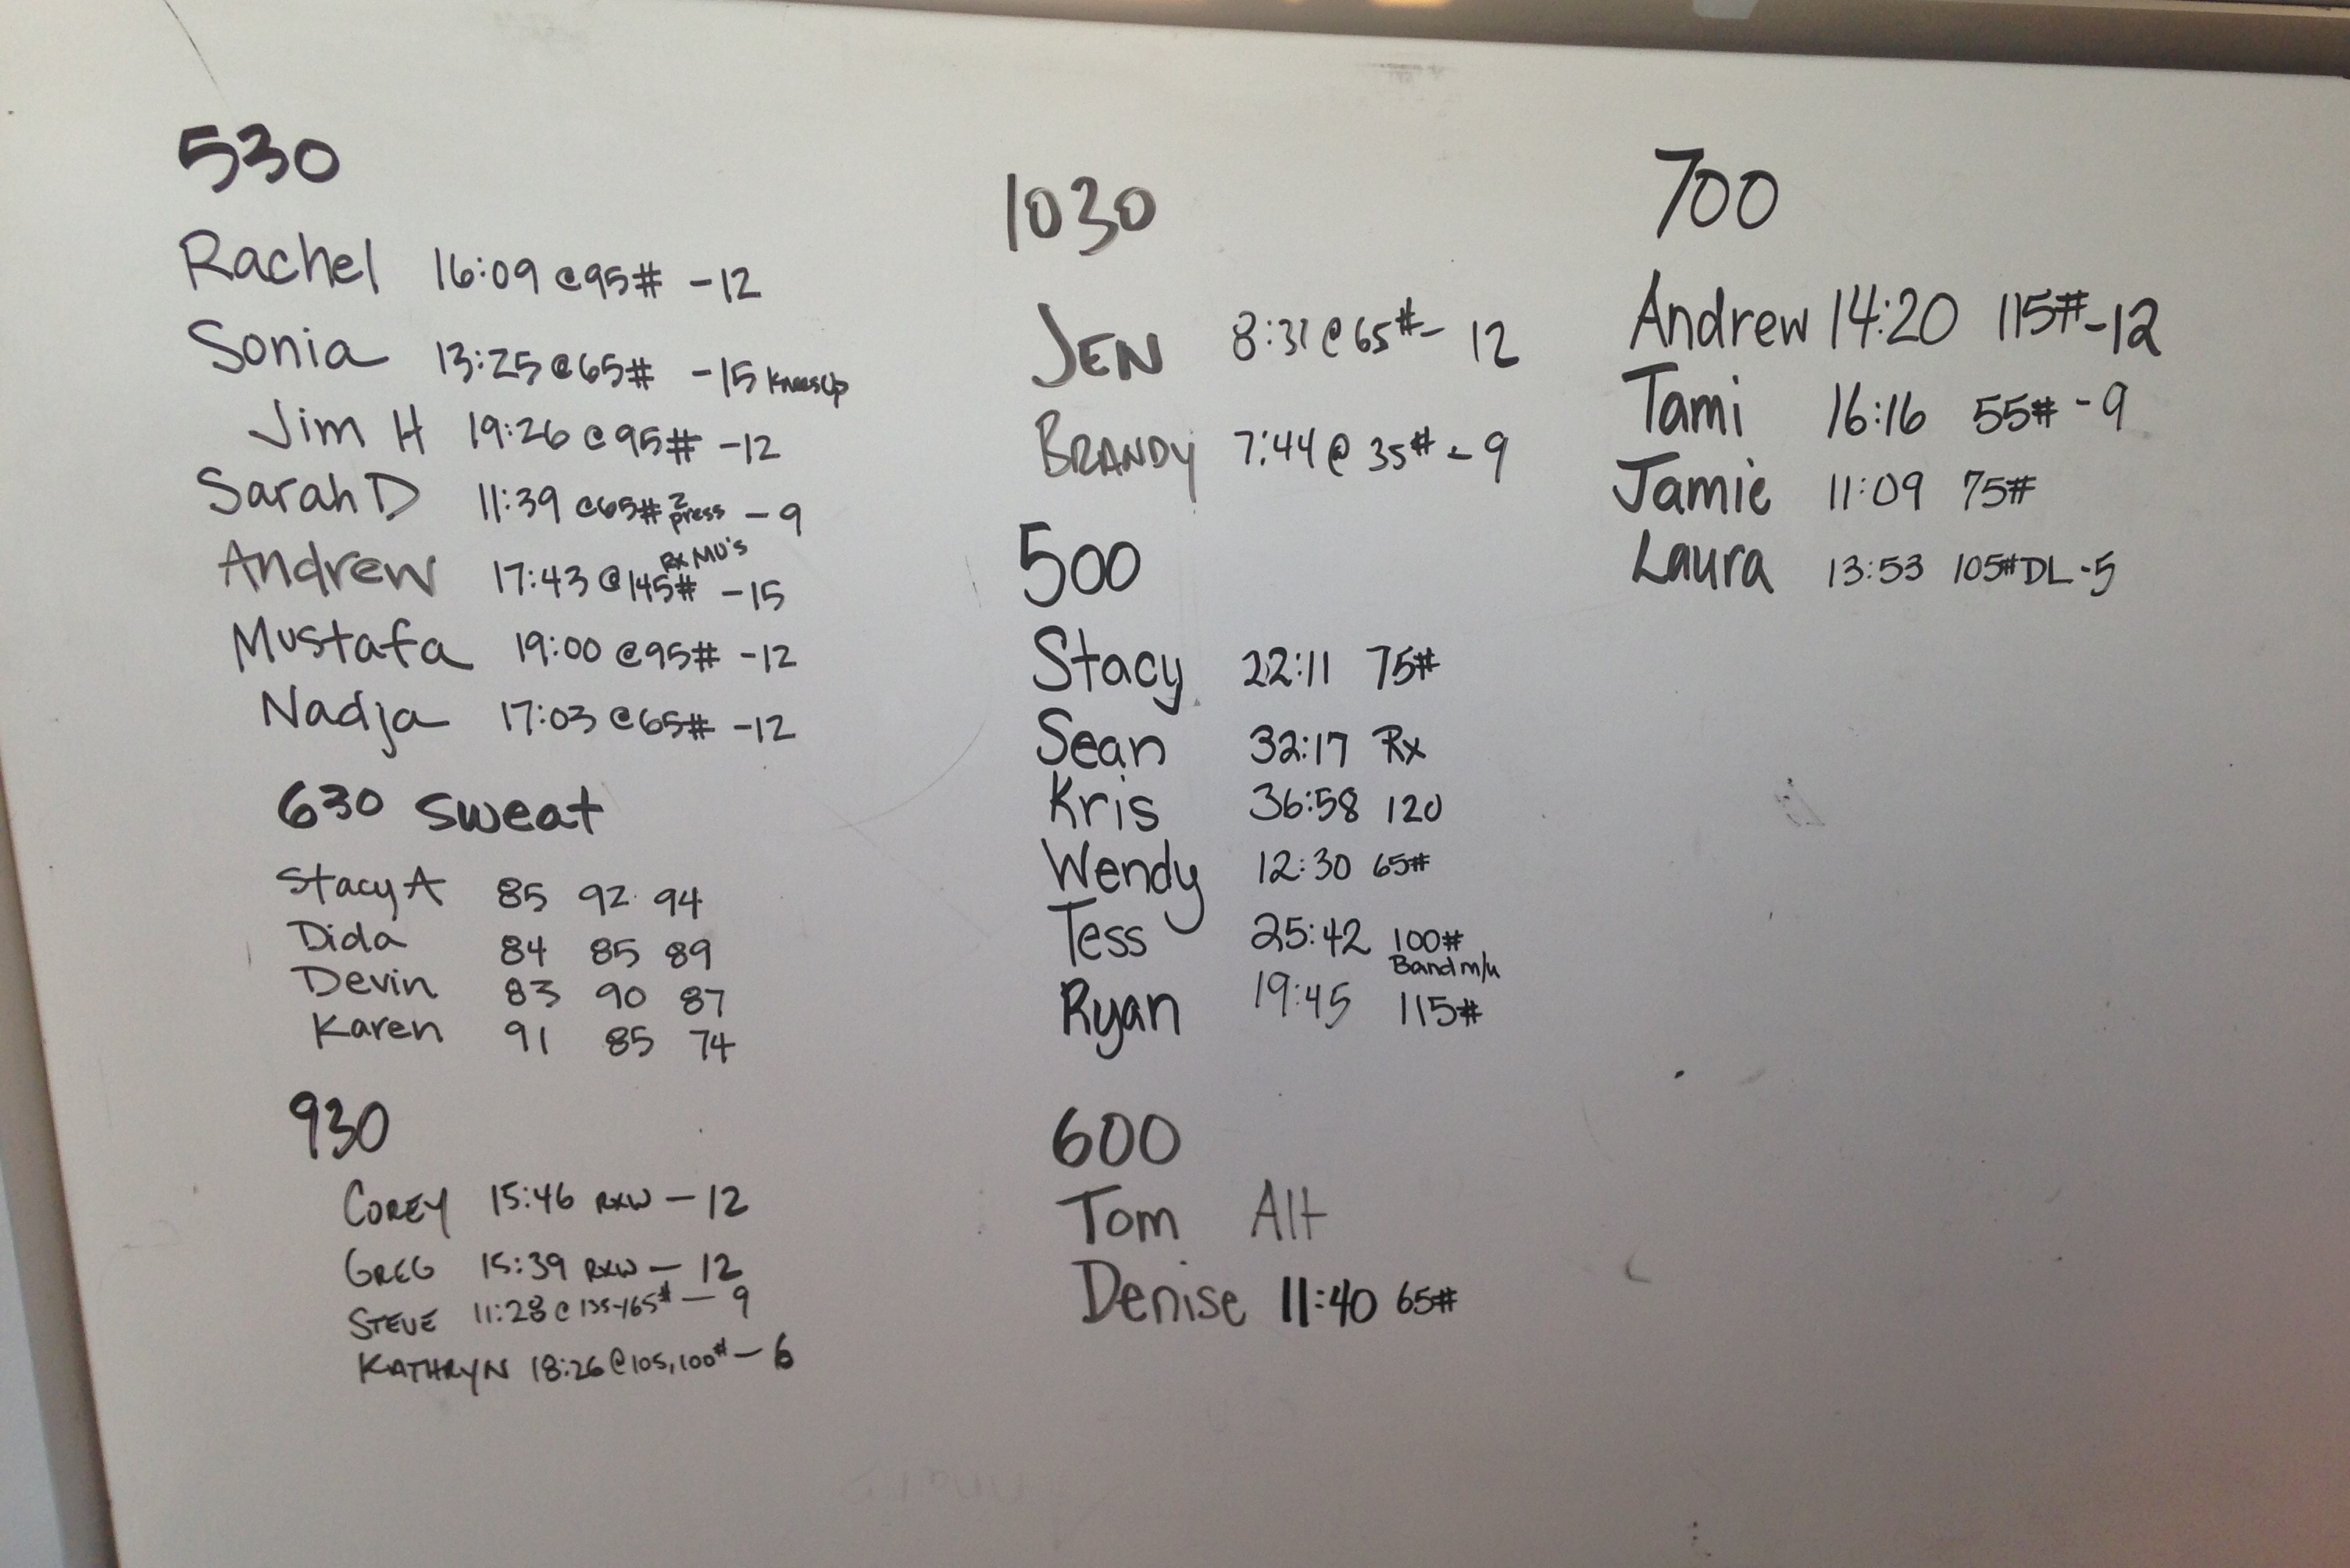 530
Rachel 16:09 @95# -12
Sonia 13:25@65# -15 Kneesup
Jim H 19:26 @95# -12
Sarah D 11:39 @65# 2 press - 9
Rx MU's
Andrew 17:43 @145# -15
Mustafa 19:00 @95# -12
Nadja 17:03 @65# -12
630 sweat
Stacy A 85 92 94
Dida 84 85 89
Devin 83 90 87
Karen 91 85 74
930
COREY 15:46 RXW - 12
GREG 15:39 RXW - 12
STEVE 11:28 @ 135-165# - 9
KATHRYN 18:26 @105,100# - 6
1030
JEN 8:31 @ 65# - 12
BRANDY 7:44 @ 35# - 9
500
Stacy 22:11 75#
Sean 32:17 Rx
Kris 36:58 120
Wendy 12:30 65#
Tess 25:42 100#
Band m/u
Ryan 19:45 115#
600
Tom Alt
Denise 11:40 65#
700
Andrew 14:20 115# -12
Tami 16:16 55# - 9
Jamie 11:09 75#
Laura 13:53 105# DL - 5